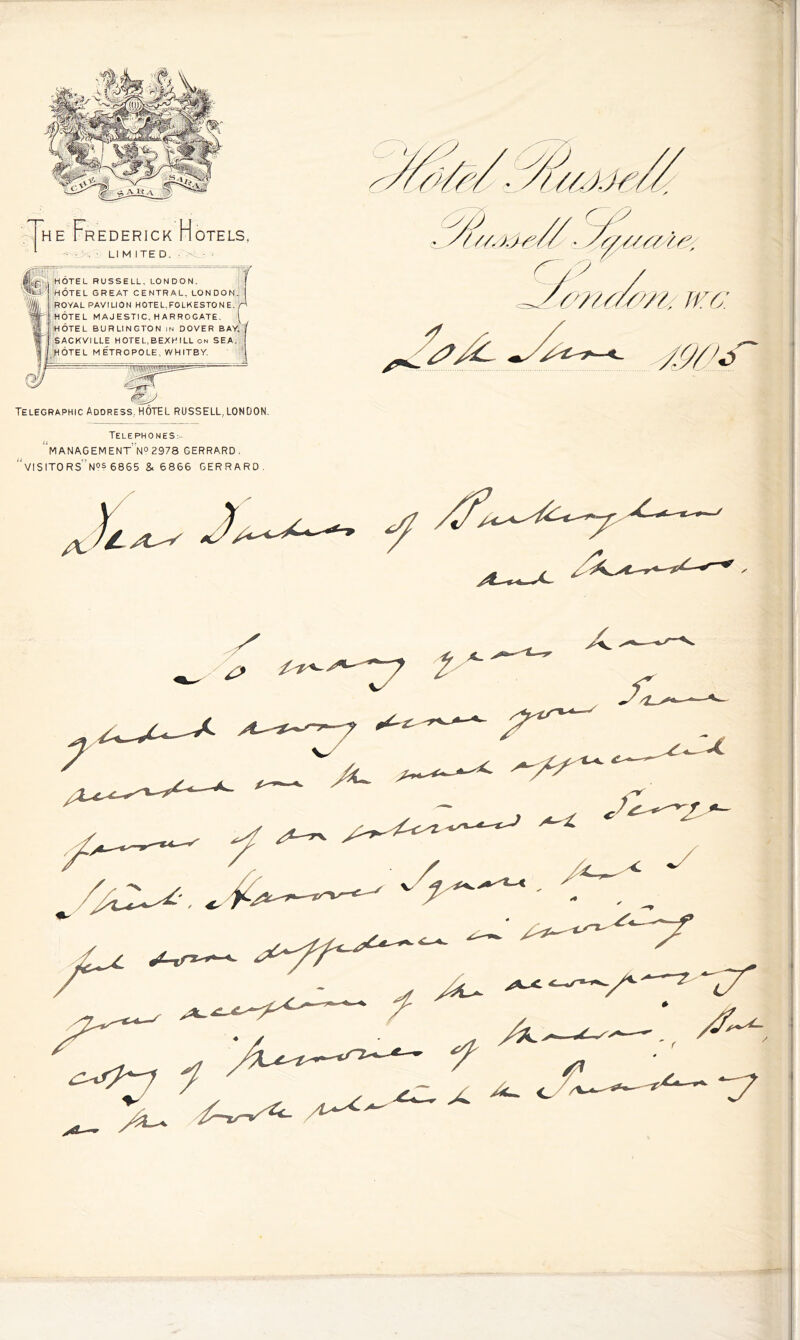 CHE SARA SARA
THE FREDERICK HOTELS,
LIMITED.
HÔTEL RUSSELL, LONDON.
HÔTEL GREAT CENTRAL, LONDON.
ROYAL PAVILION HOTEL, FOLKESTONE.
HÔTEL MAJESTIC, HARROGATE.
HÔTEL BURLINGTON IN DOVER BAY.
SACKVILLE HOTEL, BEXHILL ON SEA.
HÔTEL MÉTROPOLE, WHITBY.
TELEGRAPHIC ADDRESS, HÔTEL RUSSELL, LONDON.
TELEPHONES:-
"MANAGEMENT" Nº 2978 GERRARD.
"VISITORS" NOS 6865 & 6866 GERRARD.
Hôtel Russell,
Russell Square,
London, W.C.
20th June 1905
Dear Duchess of Buckingham
and Chandos,
So many years have
glided away since your Grace
accorded me the much appreciated
favour of an interview at George
Street, Hanover Square, that I
feel some diffidence in inviting
your acceptance of the accompanying
copy of Memories of Madras. But,
as the book relates to the Presidency